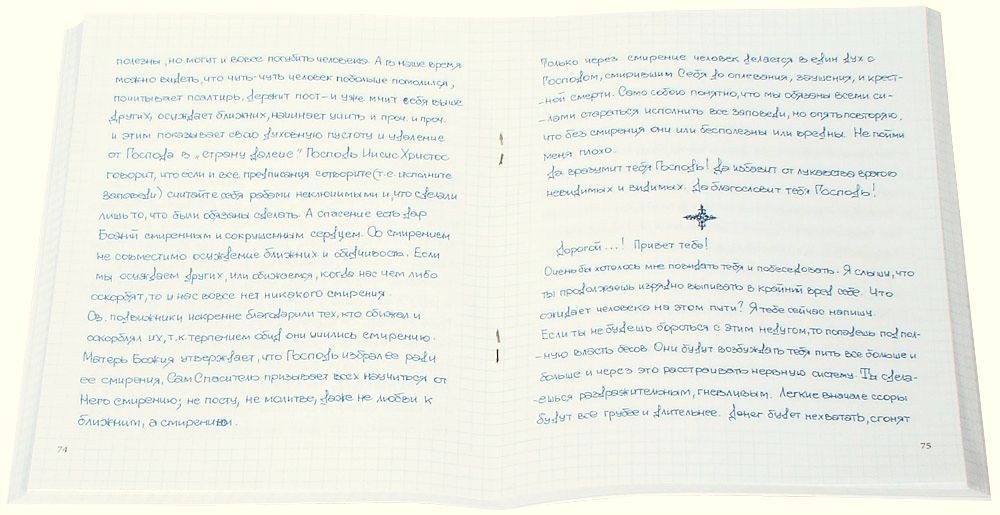 полезны, но могут и вовсе погубить человека. А в наше время
можно видеть, что чить-чуть человек побольше помолился,
почитывает псалтирь, держит пост – и уже мнит себя выше
других, осуждает ближних, начинает учить и проч. и проч.
и этим показывает свою духовную пустоту и удаление
от Господа в „страну далече." Господь Иисус Христос
говорит, что если и все предписания сотворите (т.е. исполните
заповеди) считайте себя рабами неключимыми и, что сделали
лишь то, что были обязаны сделать. А спасение есть дар
Божий смиренным и сокрушенным сердцем. Со смирением
не совместимо осуждение ближних и обидчивость. Если
мы осуждаем других, или обижаемся, когда нас чем либо
оскорбят, то и нас вовсе нет никакого смирения.
Св. подвижники искренне благодарили тех, кто обижал и
оскорблял их, т.к. терпением обид они учились смирению.
Матерь Божия утверждает, что Господь избрал ее ради
ее смирения, Сам Спаситель призывает всех научиться от
Него смирению; не посту, не молитве, даже не любви к
ближним, а смирению.
74
Только через смирение человек делается в един дух с
Господом, смирившим Себя до оплевания, заушения, и крест-
-ной смерти. Само собою понятно, что мы обязаны всеми си-
-лами стараться исполнить все заповеди, но опять повторяю,
что без смирения они или бесполезны или вредны. Не пойми
меня плохо.
Да вразумит тебя Господь! Да избавит от лукавства врагов
невидимых и видимых. Да благословит тебя Господь!
Дорогой...! Привет тебе!
Очень бы хотелось мне повидать тебя и побеседовать. Я слышу, что
ты продолжаешь изрядно выпивать в крайний вред себе. Что
ожидает человека на этом пути? Я тебе сейчас напишу.
Если ты не будешь бороться с этим недугом, то попадешь под пол-
-ную власть бесов. Они будут возбуждать тебя пить все больше и
больше и через это расстраивать нервную систему. Ты сдела-
-ешься раздражительным, гневливым. Легкие вначале ссоры
будут все грубее и длительнее. Денег будет нехватать, сгонят
75